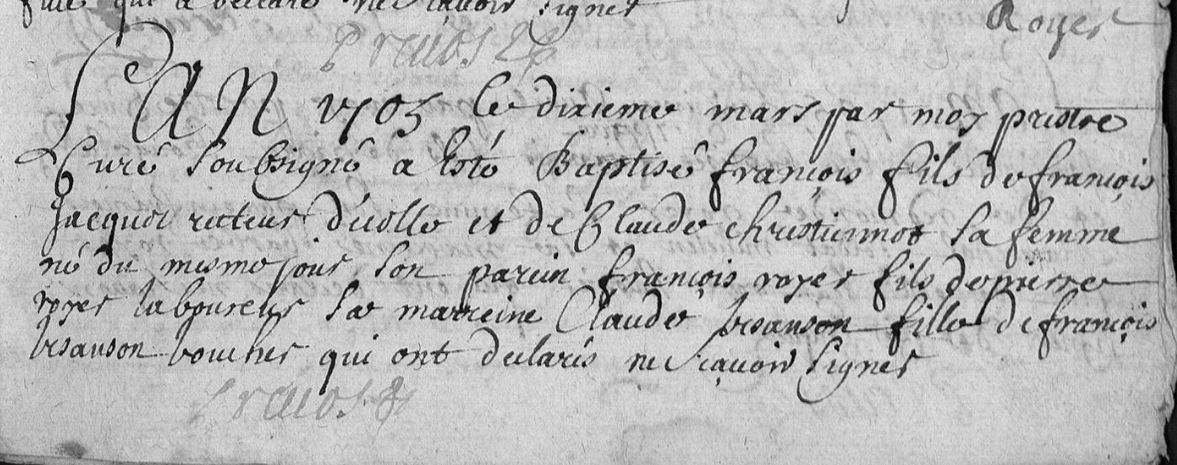 fille qui a declaré ne sçavoir signer
Royer
L'AN 1705 le dixieme mars par moy prestre
Curé soubsigné a esté Baptisé françois fils de françois
Jacquot recteur d'ecolle et de Claude chrestiennot sa femme
né du mesme jour son parein françois royer fils de pierre
royer laboureur sa marreine Claude besanson fille de françois
besanson boucher qui ont declaré ne sçavoir signer